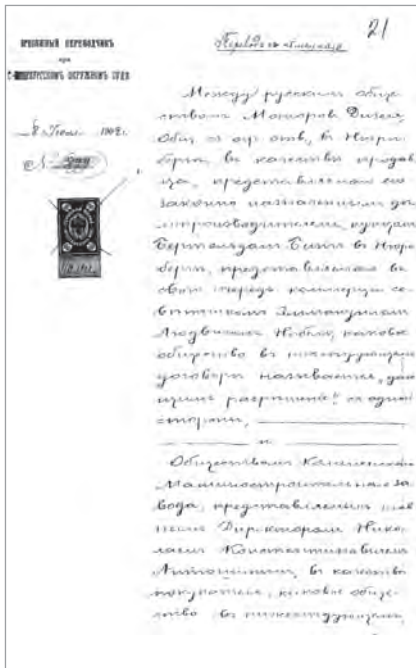 21
ПРИСЯЖНЫЙ ПЕРЕВОДЧИКЪ
при
С.-ПЕТЕРБУРГСКОМЪ ОКРУЖНОМЪ СУДѢ
Переводъ съ нѣмецкаго
Между русскимъ обще-
ствомъ Моторовъ Дизель,
Общ. съ огр. отв., въ Нюрн-
бергѣ, въ качествѣ продав-
ца, представляемаго его
законно назначеннымъ дѣ-
лопроизводителемъ, купцомъ
Бертольдомъ Бингъ въ Нюрн
бергѣ, представляемая въ
свою очередь коммерціи со-
вѣтникомъ Эммануиломъ
Людвиг Нобель, каковое
общество въ нижеслѣдующемъ
договорѣ называется „даю
щимъ разрѣшеніе“ съ одной
стороны,
и
Обществомъ Коломенскаго
Машиностроительнаго за
вода, представляемымъ
Директоромъ Нико
лаемъ Константиновичемъ
Антошинымъ, въ качествѣ
покупателя, каковое обще-
ство въ нижеслѣдующемъ